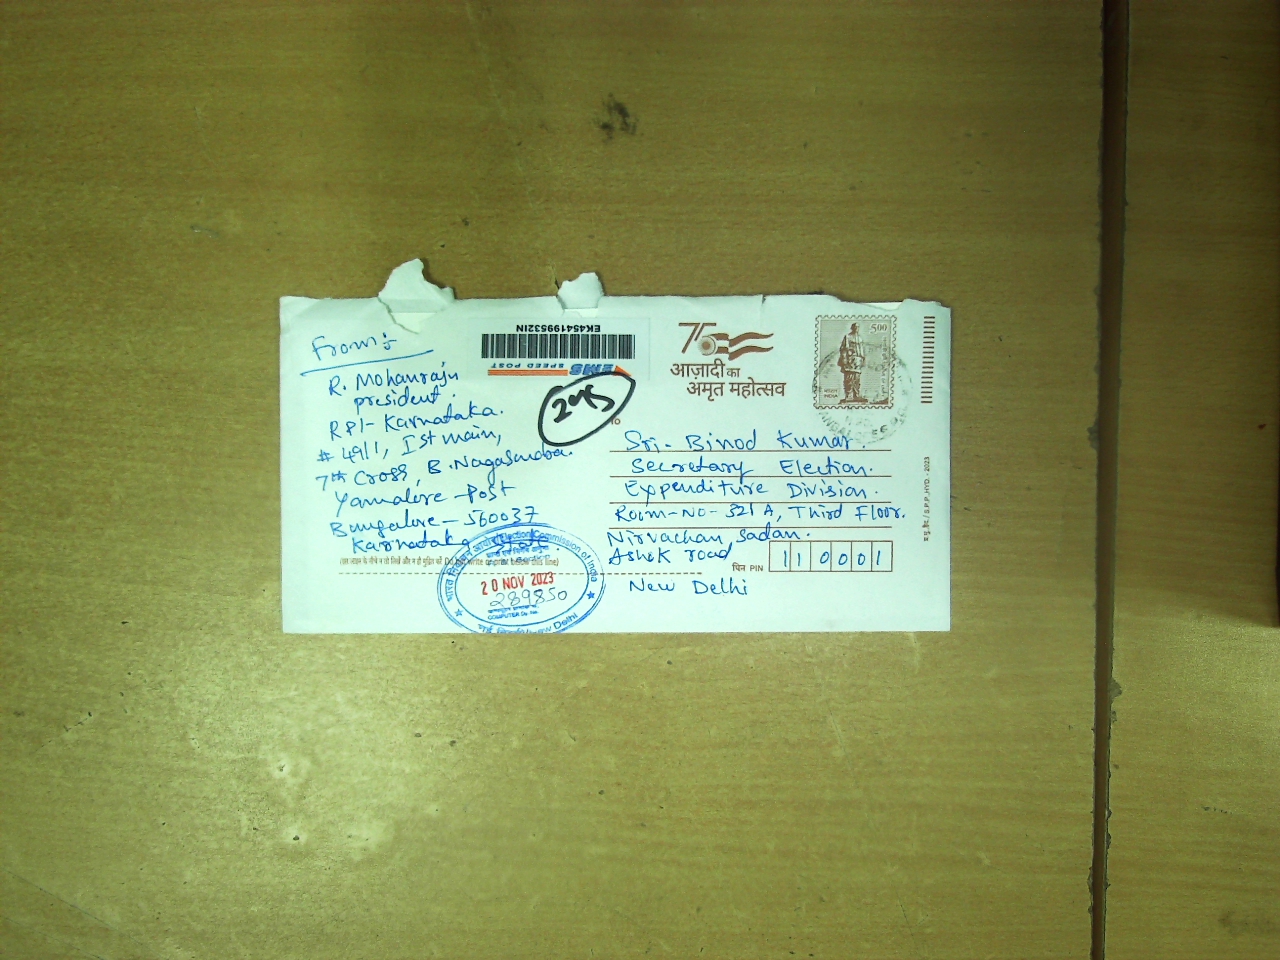 From:-
R. Mohanraju
president.
RPI- Karnataka.
# 49/1, Ist main,
7th Cross, B. Nagasandra.
Yamalore - Post
Bangalore - 560037
Karnataka State
EK454199532IN
EMS SPEED POST
245
75
आज़ादी का
अमृत महोत्सव
5.00
भारत INDIA
To
Sri. Binod Kumar.
Secretary Election.
Expenditure Division.
Room-No- 321 A, Third Floor.
Nirvachan Sadan.
Ashok road
पिन PIN 110001
New Delhi
Election Commission of India
20 NOV 2023
289850
COMPUTER Dy. No.
New Delhi
S.P.P., HYD. - 2023